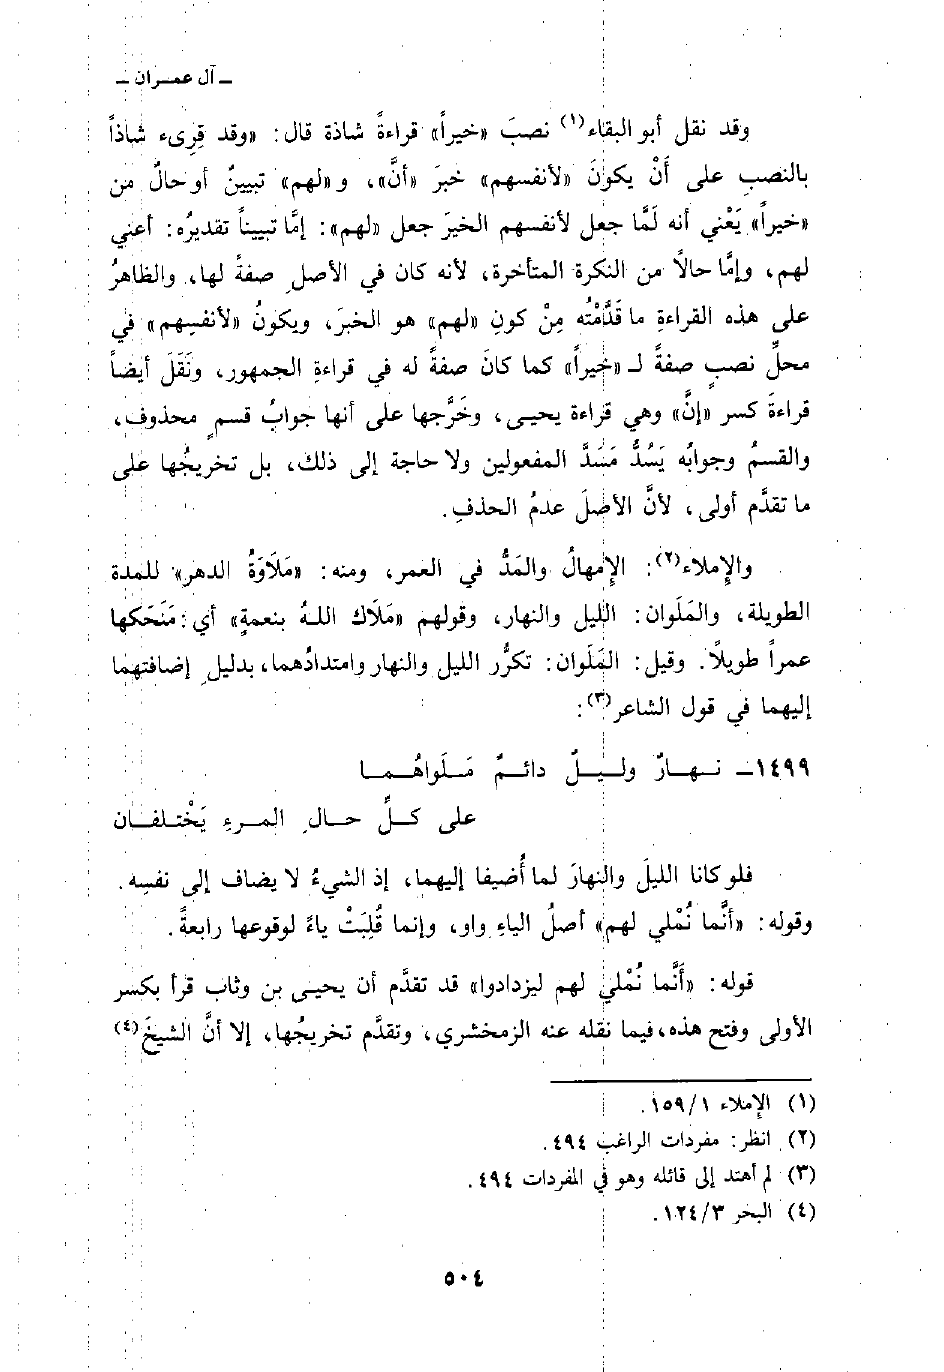 ـ آل عمـران ـ
وقد نقل أبو البقاء(١) نصبَ «خيراً» قراءةً شاذة قال: «وقد قِرىء شاذاً
بالنصبِ على أَنْ يكونَ «لأنفسهم» خبرَ «أنَّ»، و«لهم» تبيينٌ أو حالٌ من
«خيراً» يَعْني أنه لَمَّا جعل لأنفسهم الخيرَ جعل «لهم»: إمَّا تبييناً تقديرُه: أعني
لهم، وإمَّا حالاً من النكرة المتأخرة، لأنه كان في الأصلِ صفةً لها، والظاهرُ
على هذه القراءةِ ما قَدَّمْتُه مِنْ كونِ «لهم» هو الخبرَ، ويكونُ «لأنفسِهم» في
محلِّ نصبٍ صفةً لـ «خيراً» كما كانَ صفةً له في قراءةِ الجمهور، ونَقَلَ أيضاً
قراءةَ كسر «إنَّ» وهي قراءة يحيى، وخَرَّجها على أنها جوابُ قسمٍ محذوف،
والقسمُ وجوابُه يَسُدُّ مَسَدَّ المفعولين ولا حاجة إلى ذلك، بل تخريجُها على
ما تقدَّم أولى، لأنَّ الأصلَ عدمُ الحذفِ.
والإملاء(٢): الإمهالُ والمَدُّ في العمر، ومنه: «مَلَاوَةُ الدهر» للمدة
الطويلة، والمَلَوان: الليل والنهار، وقولهم «مَلَاك اللهُ بنعمةٍ» أي: مَنَحَكها
عمراً طويلاً. وقيل: المَلَوان: تكرُّر الليل والنهار وامتدادُهما، بدليلِ إضافتهما
إليهما في قول الشاعر(٣):
١٤٩٩ـ نـهـارٌ ولـيـلٌ دائـمٌ مَـلَواهُـمـا
على كـلِّ حـالِ المـرءِ يَخْتـلفـان
فلو كانا الليلَ والنهارَ لما أُضيفا إليهما، إذ الشيءُ لا يضاف إلى نفسِه.
وقوله: «أنَّما نُمْلي لهم» أصلُ الياءِ واو، وإنما قُلِبَتْ ياءً لوقوعها رابعةً.
قوله: «أَنَّما نُمْلي لهم ليزدادوا» قد تقدَّم أن يحيى بن وثاب قرأ بكسر
الأولى وفتح هذه، فيما نقله عنه الزمخشري، وتقدَّم تخريجُها، إلا أنَّ الشيخَ(٤)
(١) الإملاء ١/١٥٩.
(٢) انظر: مفردات الراغب ٤٩٤.
(٣) لم أهتد إلى قائله وهو في المفردات ٤٩٤.
(٤) البحر ٣/١٢٤.
٥٠٤